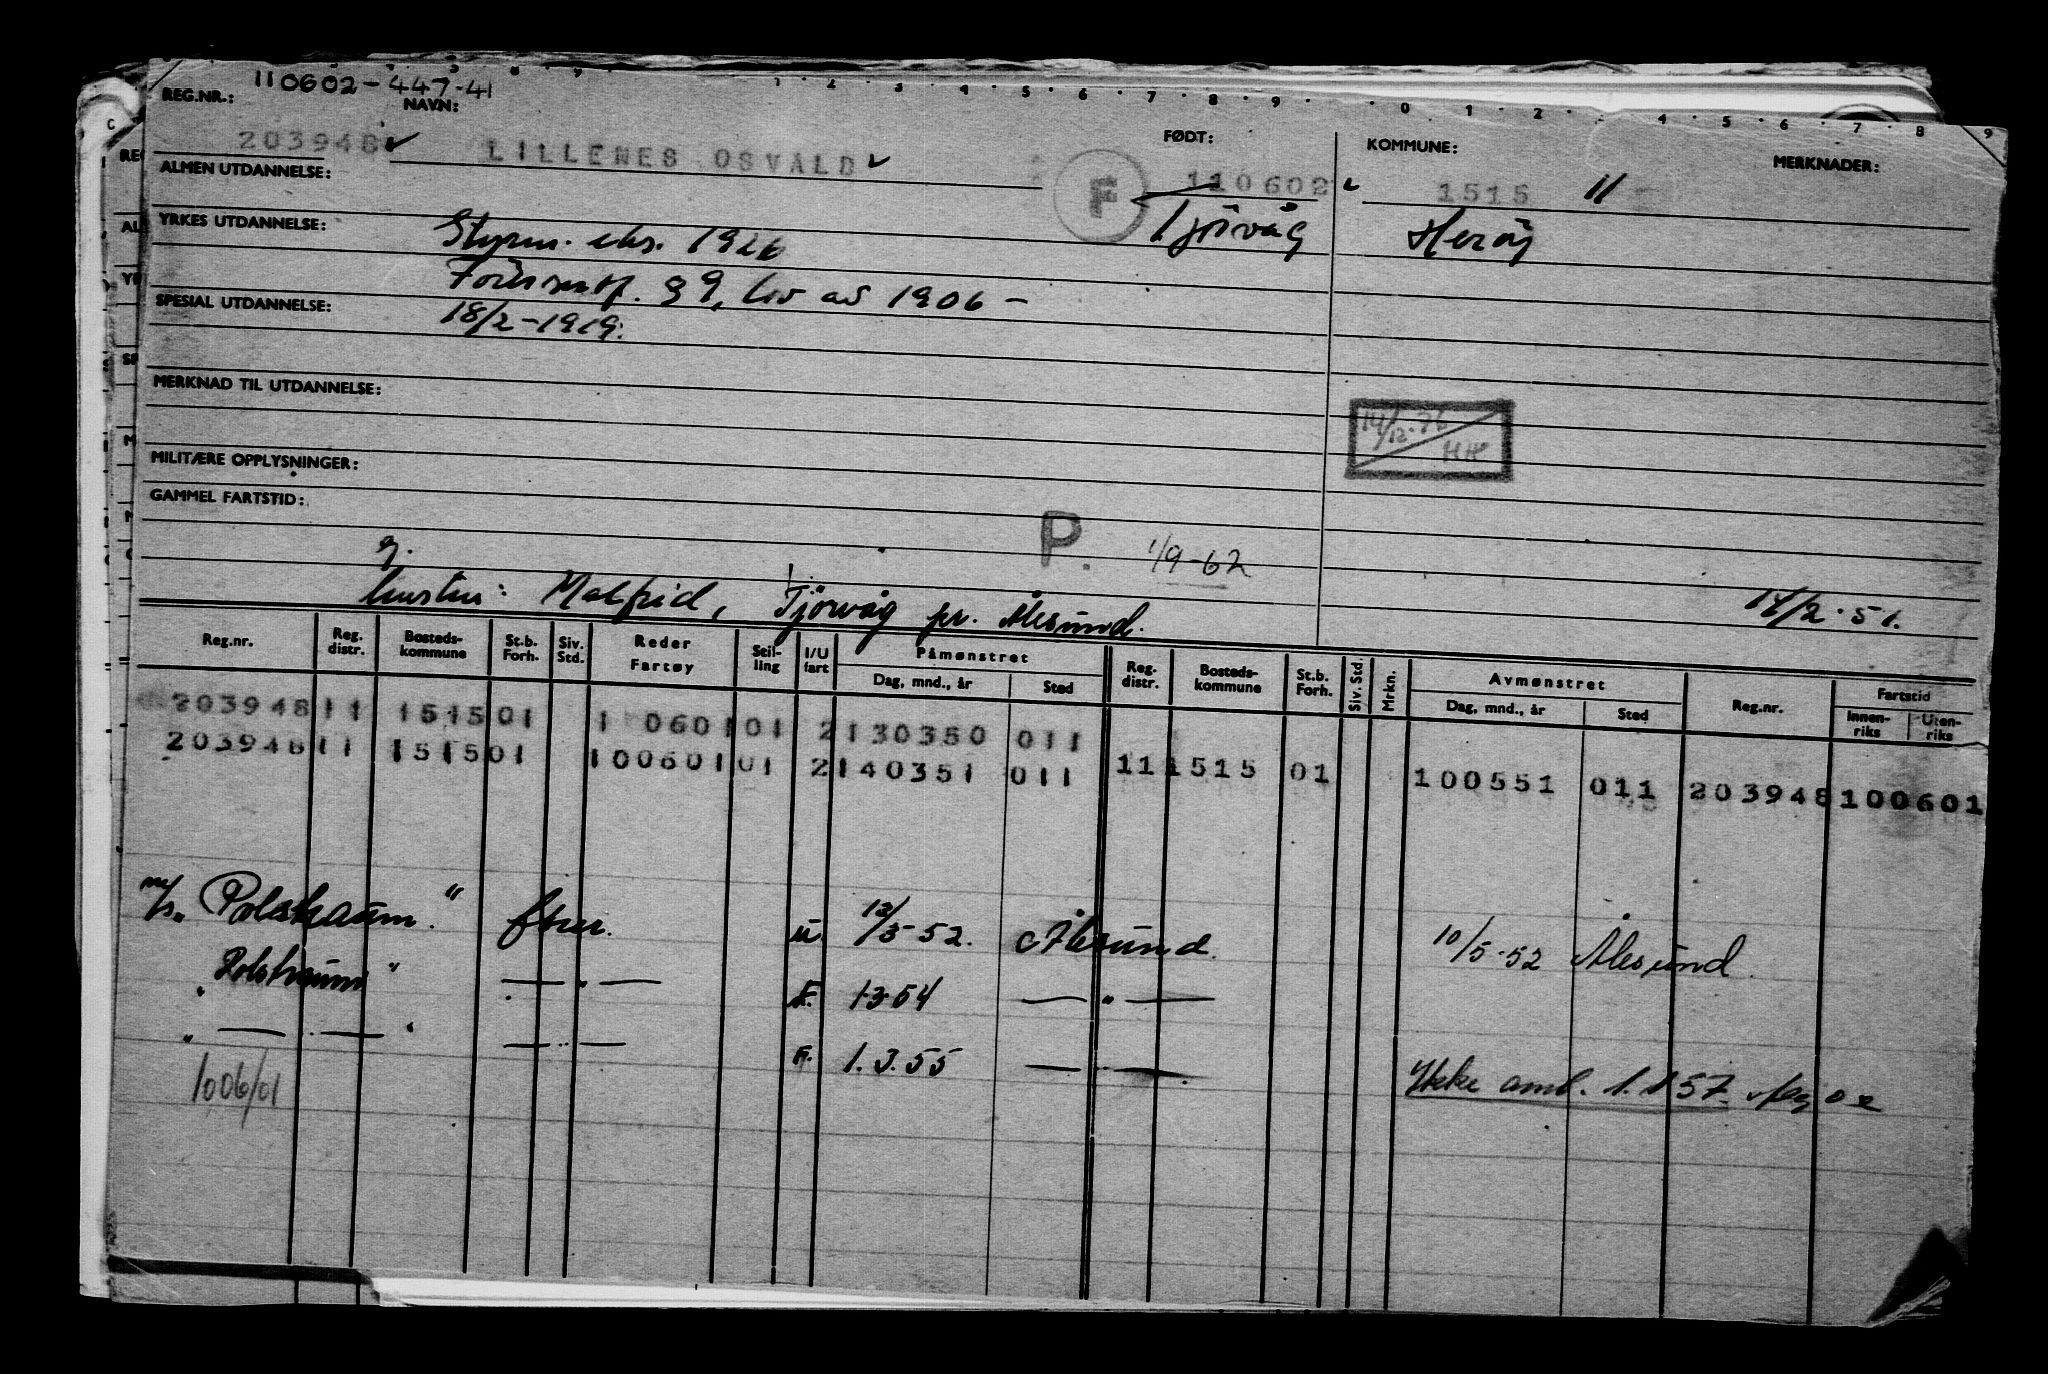 110602-447-41
REG.NR.: NAVN: FØDT: KOMMUNE: MERKNADER:
203948 LILLENES OSVALD F 110602 1515 11
ALMEN UTDANNELSE:
Tjörvåg Herøy
YRKES UTDANNELSE: Styrm. eks. 1926
§ 9, lov av 1906 -
SPESIAL UTDANNELSE: 18/2-1919.
MERKNAD TIL UTDANNELSE:
14/12.76
HH
MILITÆRE OPPLYSNINGER:
GAMMEL FARTSTID:
P. 1/9-62
g.
hustru: Malfrid, Tjörvåg pr. Ålesund. 14/2.51.
Reg.nr. Reg. distr. Bosteds-kommune St.b. Forh. Siv. Std. Reder Fartøy Stil-ling I/U fart Påmønstret Dag, mnd., år Sted Reg. distr. Bosteds-kommune St.b. Forh. Siv. Std. Mrkn. Avmønstret Dag, mnd., år Sted Reg.nr. Fartstid Innen-riks Uten-riks
203948 11 1515 01 1 0601 01 2 130350 011
203948 11 1515 01 100601 01 2 140351 011 11 1515 01 100551 011 203948 100601
m/s "Polshaum" u. 13/3-52. Ålesund. 10/5-52 Ålesund.
" Polshaum " — " — F. 1-3-54 — " —
" — . — " — " — F. 1.3.55 — " — Ikke omb. 1.1 57.
1006/01